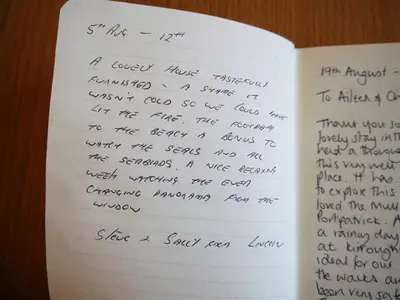 5TH AUG – 12TH
A LOVELY HOUSE TASTEFULLY
FURNISHED – A SHAME IT
WASN'T COLD SO WE COULD HAVE
LIT THE FIRE. THE FOOTPATH
TO THE BEACH A BONUS TO
WATCH THE SEALS AND ALL
THE SEABIRDS. A NICE RELAXING
WEEK WATCHING THE EVER
CHANGING PANORAMA FROM THE
WINDOW
STEVE & SALLY FROM LINCOLN
19th August –
To Aileen & Ch
Thank you so
lovely stay in th
held a thousan
this very well
place. It has
to explore this
loved the Mull
Portpatrick. A
a rainy day
at Kirrough
ideal for our
the walks an
been very saf